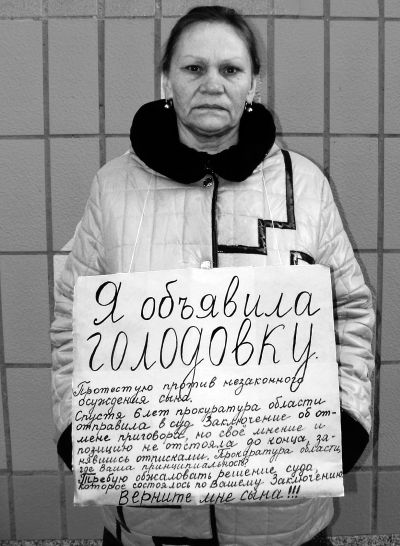 Я объявила
голодовку.
Протестую против незаконного
осуждения сына.
Спустя 6 лет прокуратура области
отправила в суд Заключение об от-
мене приговора, но своё мнение и
позицию не отстояла до конца, за-
нявшись отписками. Прокуратура области,
где Ваша принципиальность?
Требую обжаловать решение суда,
которое состоялось по Вашему Заключению
Верните мне сына!!!